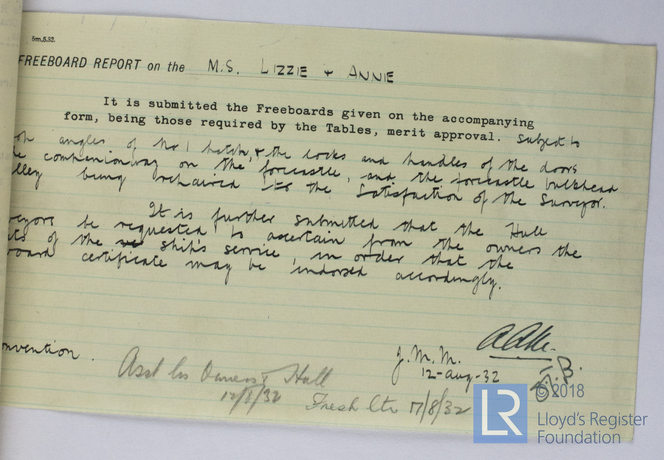 FREEBOARD REPORT on the M.S. LIZZIE & ANNIE
It is submitted the Freeboards given on the accompanying
form, being those required by the Tables, merit approval. Subject to
angles of No 1 hatch, & the locks and handles of the doors
companionway on the forecastle, and the forecastle bulkhead
being repaired to the Satisfaction of the Surveyor.
It is further submitted that the Hull
veyors be requested to ascertain from the owners the
ts of the ship's service, in order that the
board certificate may be indorsed accordingly.
onvention.
J.M.M.
12-Aug-32
Asst Owners & Hull
12/8/32
Fresh 17/8/32
© 2018
LR
Lloyd's Register
Foundation